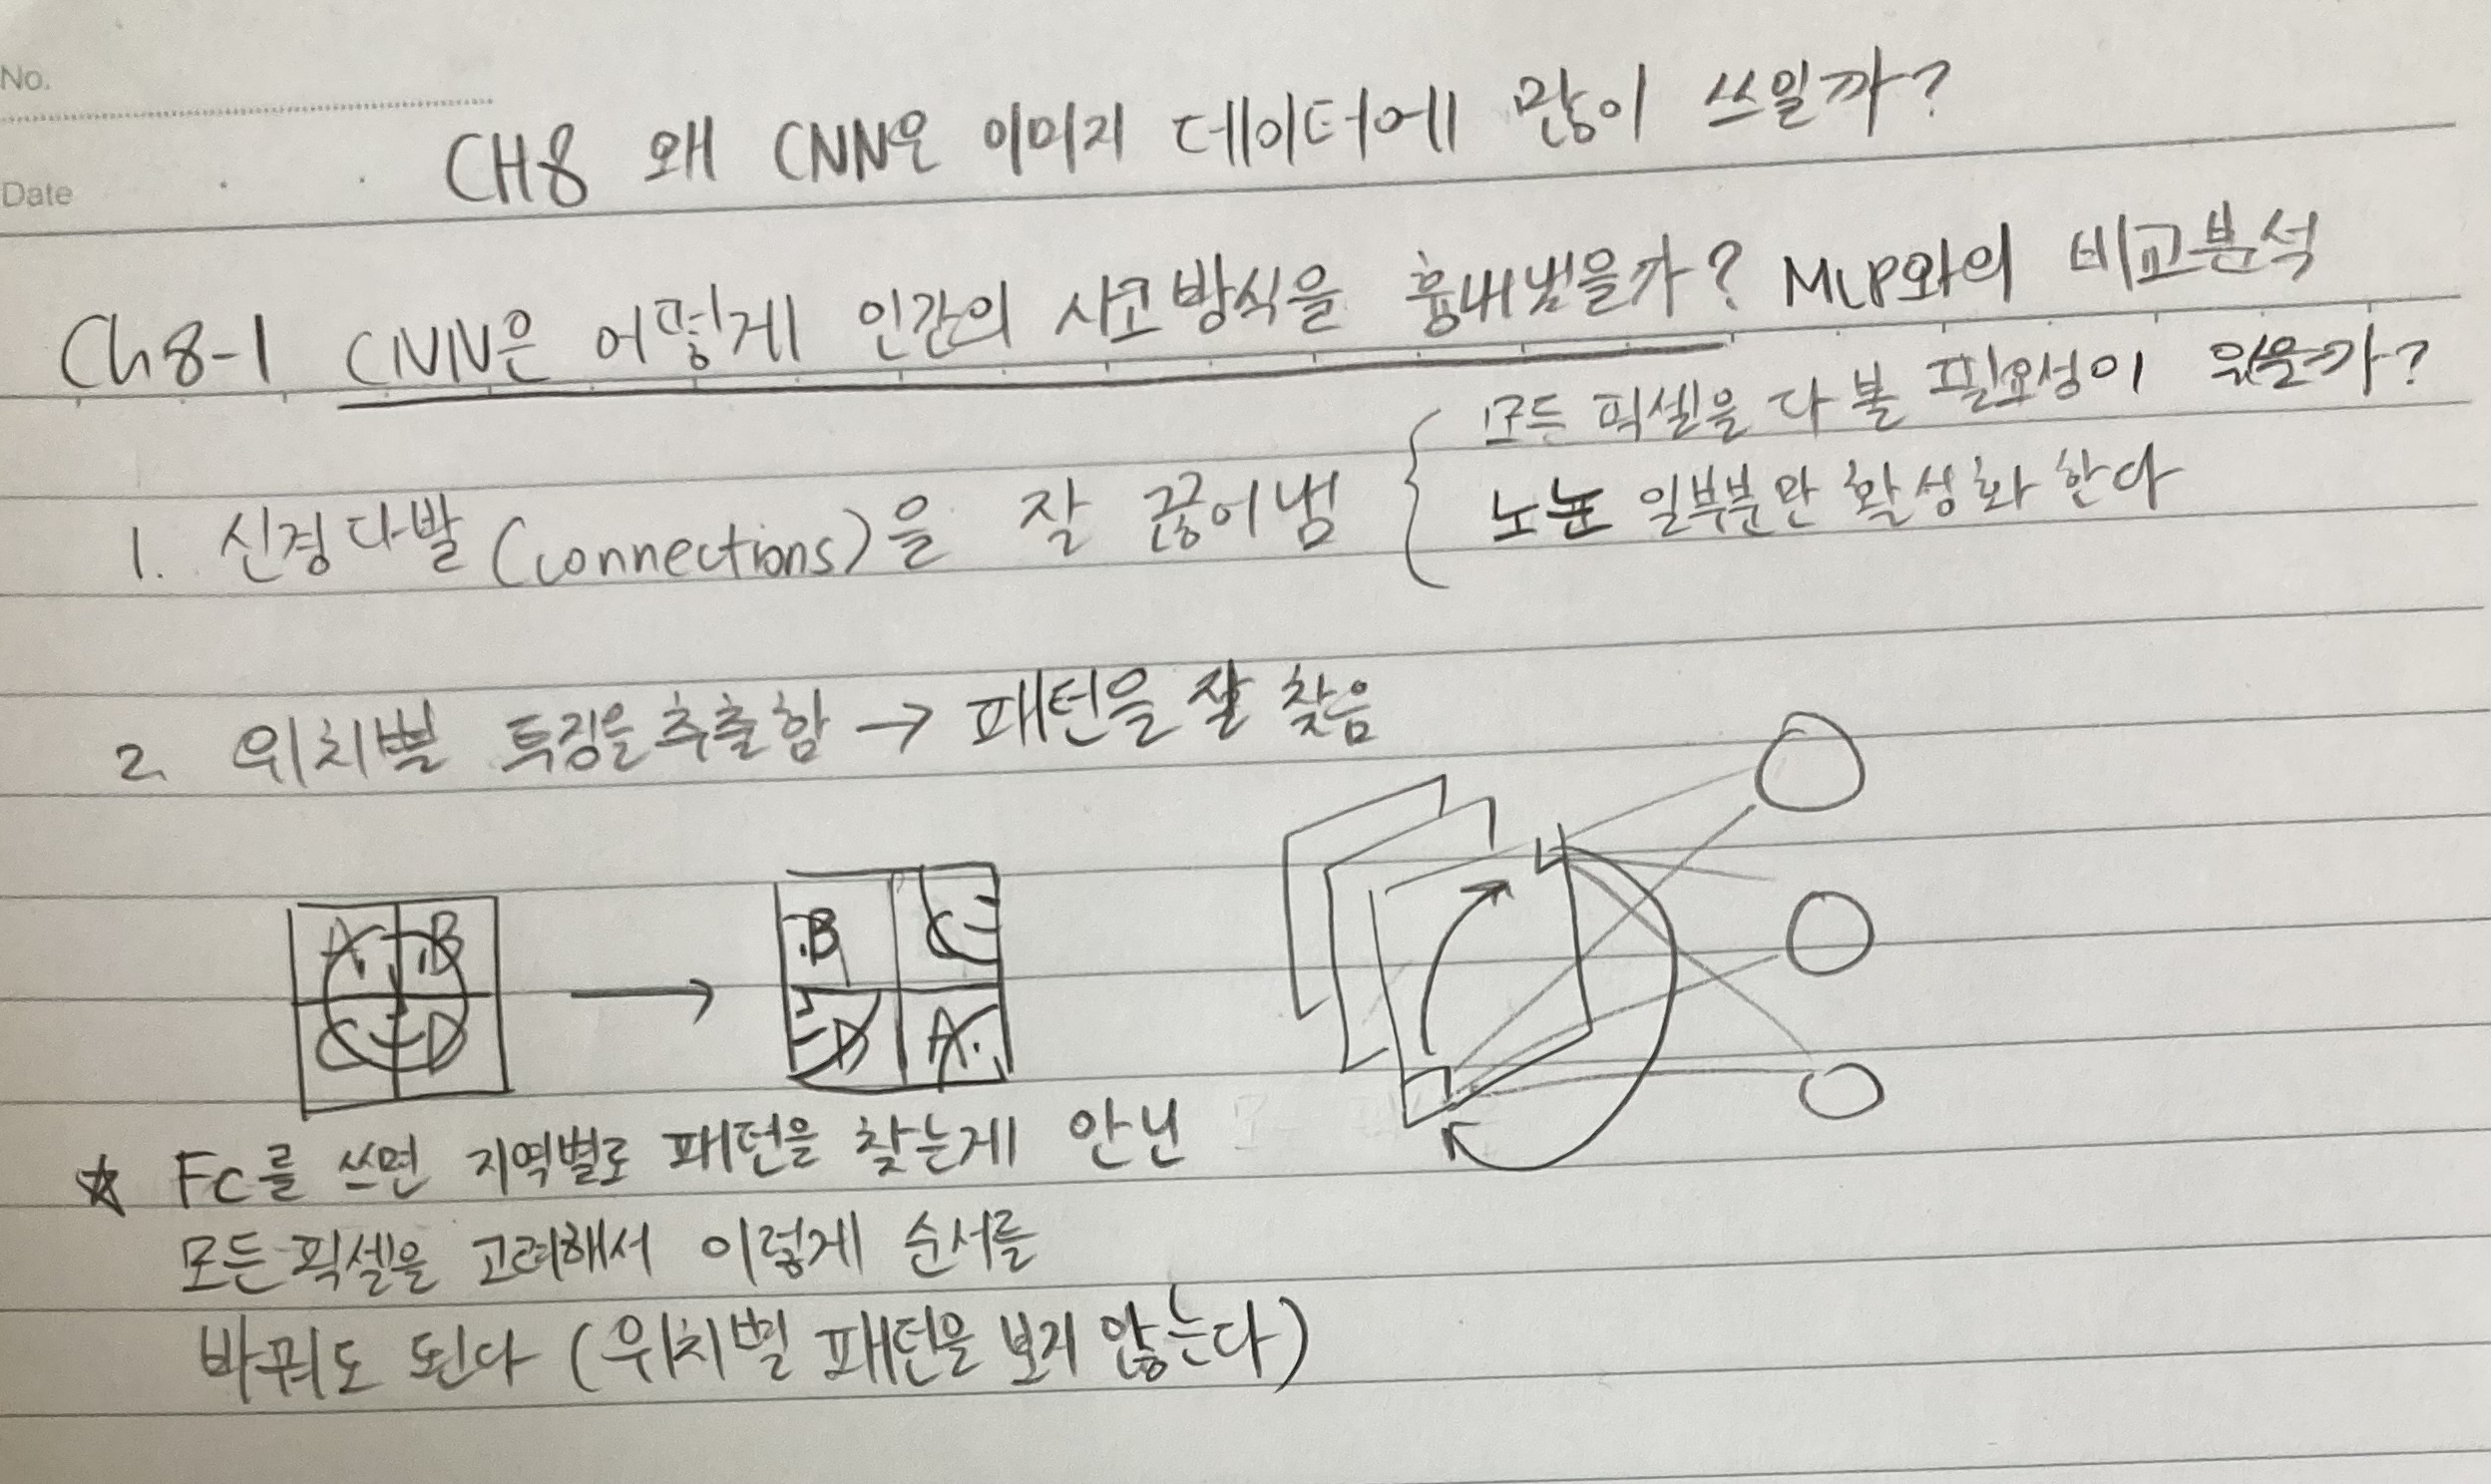 No.
Date
CH8 왜 CNN은 이미지 데이터에 많이 쓰일까?
Ch8-1 CNN은 어떻게 인간의 사고방식을 흉내냈을까? MLP와의 비교분석
1. 신경다발(connections)을 잘 끊어냄
모든 픽셀을 다 볼 필요성이 있을까?
노는 일부분만 활성화 한다
2. 위치별 특징을 추출함 → 패턴을 잘 찾음
A B
C D
B C
D A
☆ FC를 쓰면 지역별로 패턴을 찾는게 안닌
모든 픽셀을 고려해서 이렇게 순서를
바꿔도 된다 (위치별 패턴을 보지 않는다)